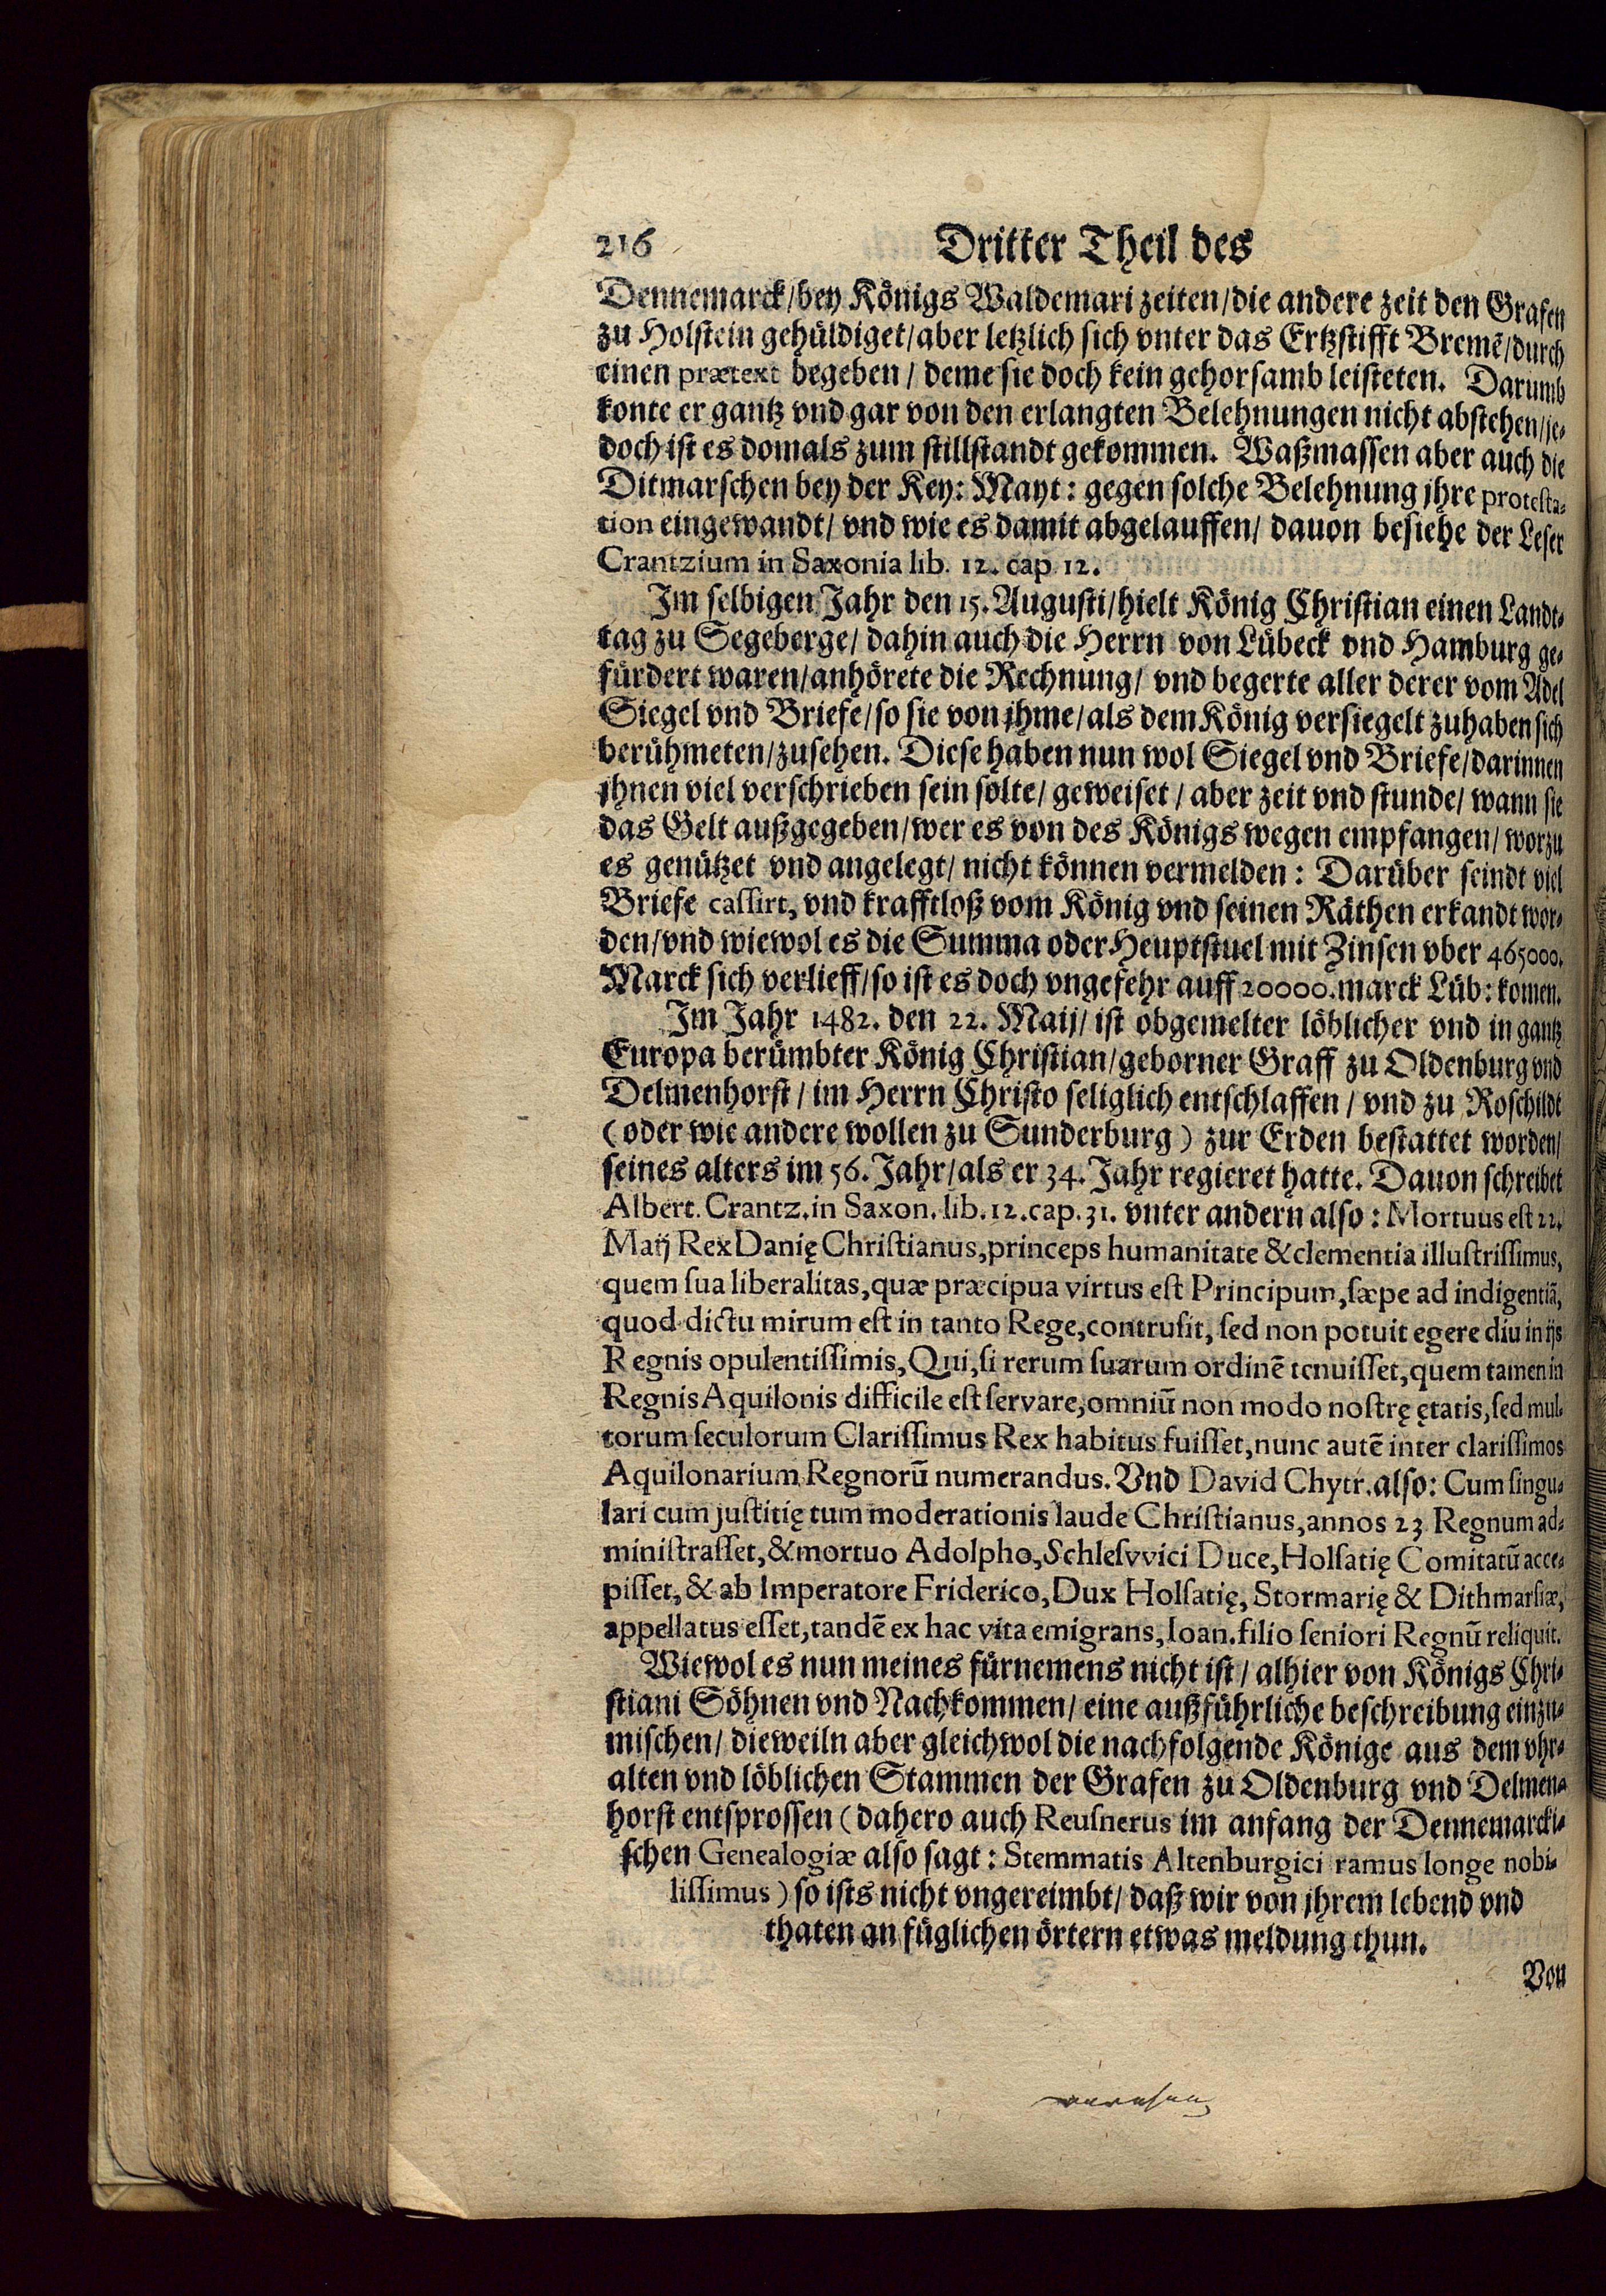 216 Dritter Theil des
Dennemarck/bey Königs Waldemari zeiten/die andere zeit den Grafen
zu Holstein gehüldiget/aber letzlich sich vnter das Ertzstifft Bremẽ/durch
einen prætext begeben/ deme sie doch kein gehorsamb leisteten. Darumb
konte er gantz vnd gar von den erlangten Belehnungen nicht abstehen/je-
doch ist es domals zum stillstandt gekommen. Waßmassen aber auch die
Ditmarschen bey der Key: Mayt: gegen solche Belehnung jhre protesta-
tion eingewandt/ vnd wie es damit abgelauffen/ dauon besiehe der Leser
Crantzium in Saxonia lib. 12. cap 12.
Im selbigen Jahr den 15. Augusti/hielt König Christian einen Landt-
tag zu Segeberge/ dahin auch die Herrn von Lübeck vnd Hamburg ge-
fürdert waren/anhörete die Rechnung/ vnd begerte aller derer vom Adel
Siegel vnd Briefe/so sie von jhme/als dem König versiegelt zuhaben sich
berühmeten/zusehen. Diese haben nun wol Siegel vnd Briefe/darinnen
jhnen viel verschrieben sein solte/ geweiset/ aber zeit vnd stunde/ wann sie
das Gelt außgegeben/wer es von des Königs wegen empfangen/ worzu
es genützet vnd angelegt/ nicht können vermelden: Darüber seindt viel
Briefe cassirt, vnd krafftloß vom König vnd seinen Räthen erkandt wor-
den/vnd wiewol es die Summa oder Heuptstuel mit Zinsen vber 465000.
Marck sich verlieff/so ist es doch vngefehr auff 20000.marck Lüb: komen.
Im Jahr 1482. den 22. Maij/ ist obgemelter löblicher vnd in gantz
Europa berümbter König Christian/geborner Graff zu Oldenburg vnd
Delmenhorst/ im Herrn Christo seliglich entschlaffen/ vnd zu Roschildt
(oder wie andere wollen zu Sunderburg) zur Erden bestattet worden/
seines alters im 56. Jahr/als er 34. Jahr regieret hatte. Dauon schreibet
Albert. Crantz. in Saxon. lib. 12. cap. 31. vnter andern also: Mortuus est 22.
Maij Rex Danię Christianus, princeps humanitate & clementia illustrissimus,
quem sua liberalitas, quæ præcipua virtus est Principum, sæpe ad indigentiã,
quod dictu mirum est in tanto Rege, contrusit, sed non potuit egere diu in ijs
Regnis opulentissimis, Qui, si rerum suarum ordinẽ tenuisset, quem tamen in
Regnis Aquilonis difficile est servare, omniũ non modo nostrę ętatis, sed mul-
torum seculorum Clarissimus Rex habitus fuisset, nunc autẽ inter clarissimos
Aquilonarium Regnorũ numerandus. Vnd David Chytr. also: Cum singu-
lari cum justitię tum moderationis laude Christianus, annos 23 Regnum ad-
ministrasset, & mortuo Adolpho, Schlesvvici Duce, Holsatię Comitatũ acce-
pisset, & ab Imperatore Friderico, Dux Holsatię, Stormarię & Dithmarsiæ,
appellatus esset, tandẽ ex hac vita emigrans, Ioan. filio seniori Regnũ reliquit.
Wiewol es nun meines fürnemens nicht ist/ alhier von Königs Chri-
stiani Söhnen vnd Nachkommen/ eine außführliche beschreibung einzu-
mischen/ dieweiln aber gleichwol die nachfolgende Könige aus dem vhr-
alten vnd löblichen Stammen der Grafen zu Oldenburg vnd Delmen-
horst entsprossen (dahero auch Reusnerus im anfang der Dennemarcki-
schen Genealogiæ also sagt: Stemmatis Altenburgici ramus longe nobi-
lissimus) so ists nicht vngereimbt/ daß wir von jhrem lebend vnd
thaten an füglichen örtern etwas meldung thun.
Von